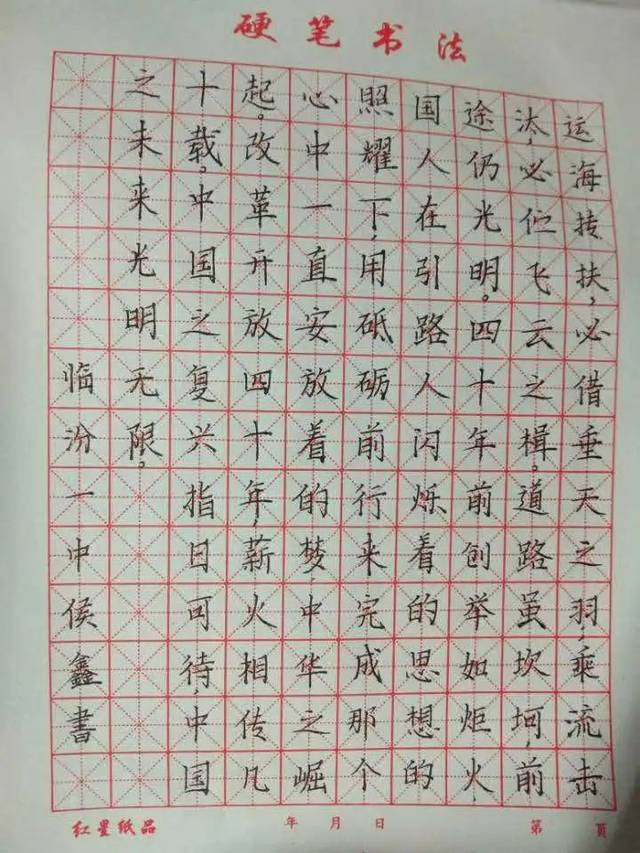 硬笔书法
运海抟扶,必借垂天之羽,乘流击
汰,必伫飞云之楫。道路虽坎坷,前
途仍光明。四十年前创举如炬火,
国人在引路人闪烁着的思想的
照耀下,用砥砺前行来完成那个
心中一直安放着的梦,中华之崛
起。改革开放四十年,薪火相传几
十载。中国之复兴指日可待,中国
之未来光明无限。
临汾一中侯鑫書
红星纸品 年 月 日 第 頁